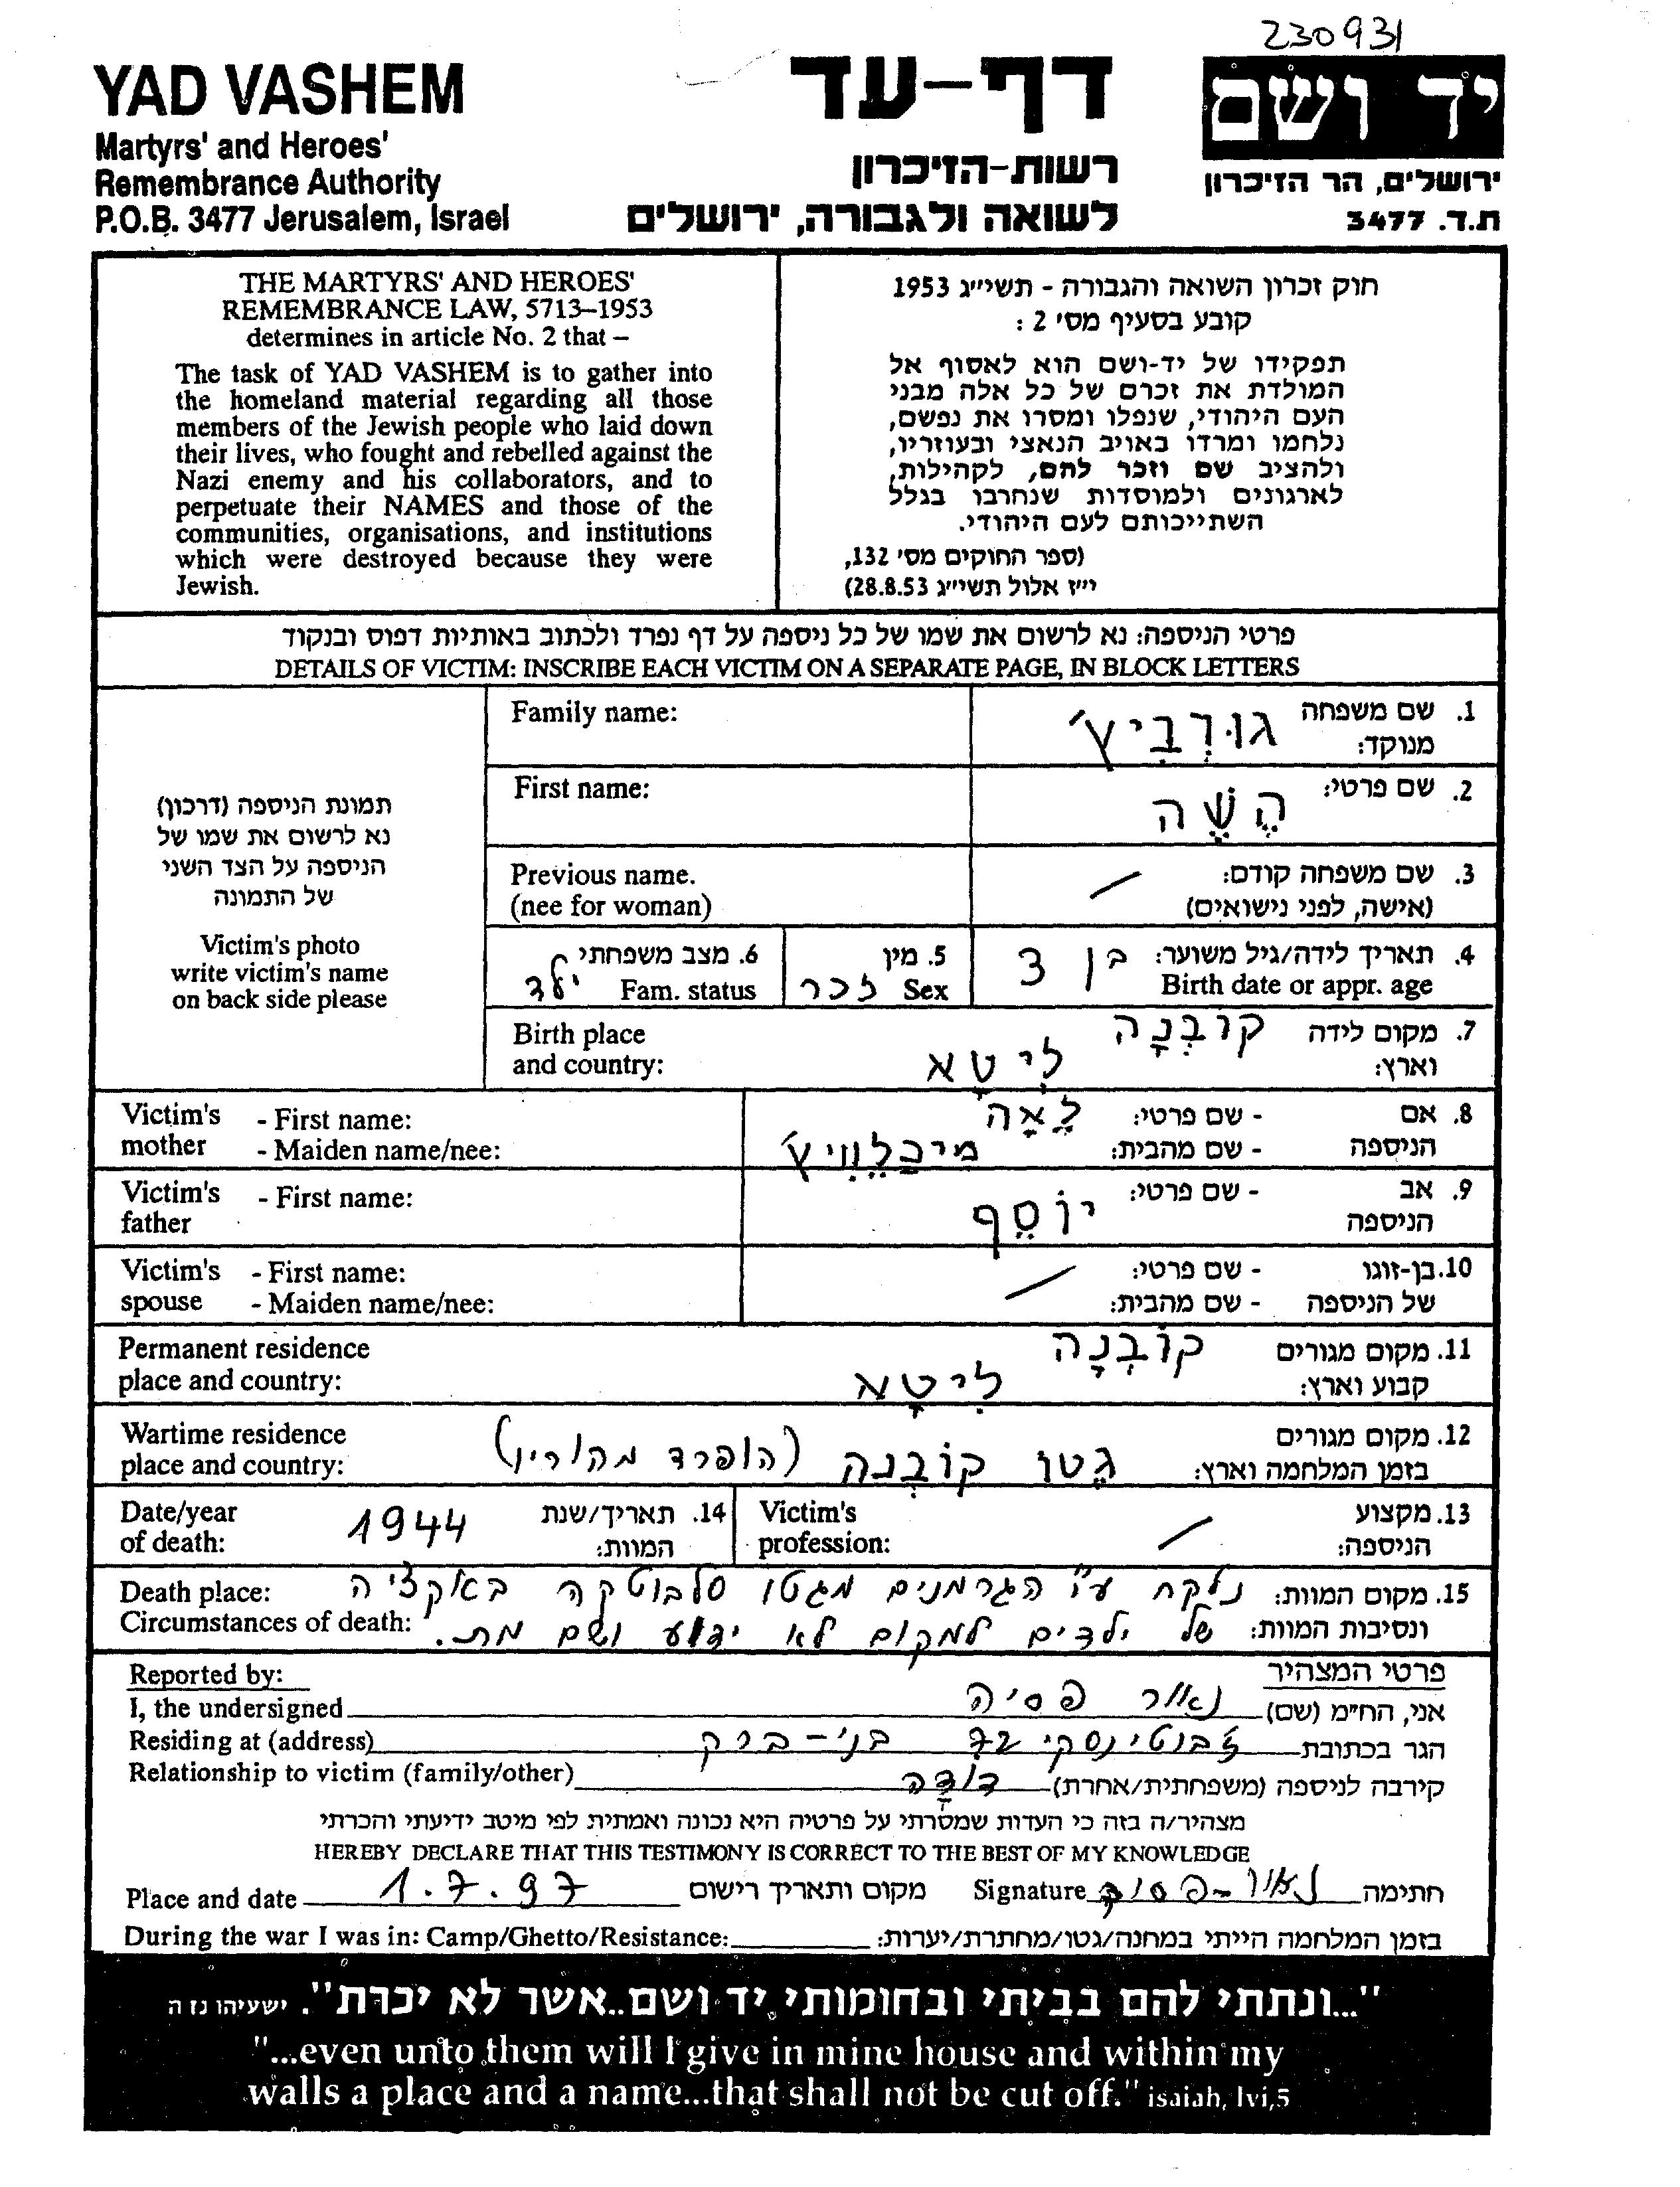 230931
YAD VASHEM
Martyrs' and Heroes'
Remembrance Authority
P.O.B. 3477 Jerusalem, Israel
דף-עד
רשות-הזיכרון
לשואה ולגבורה, ירושלים
יד ושם
ירושלים, הר הזיכרון
ת.ד. 3477
THE MARTYRS' AND HEROES'
REMEMBRANCE LAW, 5713–1953
determines in article No. 2 that –
The task of YAD VASHEM is to gather into
the homeland material regarding all those
members of the Jewish people who laid down
their lives, who fought and rebelled against the
Nazi enemy and his collaborators, and to
perpetuate their NAMES and those of the
communities, organisations, and institutions
which were destroyed because they were
Jewish.
חוק זכרון השואה והגבורה - תשי״ג 1953
קובע בסעיף מס׳ 2 :
תפקידו של יד-ושם הוא לאסוף אל
המולדת את זכרם של כל אלה מבני
העם היהודי, שנפלו ומסרו את נפשם,
נלחמו ומרדו באויב הנאצי ובעוזריו,
ולהציב שם וזכר להם, לקהילות,
לארגונים ולמוסדות שנחרבו בגלל
השתייכותם לעם היהודי.
(ספר החוקים מס׳ 132,
י״ז אלול תשי״ג 28.8.53)
פרטי הניספה: נא לרשום את שמו של כל ניספה על דף נפרד ולכתוב באותיות דפוס ובנקוד
DETAILS OF VICTIM: INSCRIBE EACH VICTIM ON A SEPARATE PAGE, IN BLOCK LETTERS
תמונת הניספה (דרכון)
נא לרשום את שמו של
הניספה על הצד השני
של התמונה
Victim's photo
write victim's name
on back side please
Family name:
1. שם משפחה גוּרְבִיץ׳
מנוקד:
First name:
2. שם פרטי: הֶשֶׁה
Previous name.
(nee for woman)
3. שם משפחה קודם: /
(אישה, לפני נישואים)
4. תאריך לידה/גיל משוער: בן 3
Birth date or appr. age
5. מין
Sex זכר
6. מצב משפחתי
Fam. status ילד
Birth place
and country:
7. מקום לידה קוֹבְנָה
וארץ: לִיטָא
Victim's - First name:
mother - Maiden name/nee:
8. אם - שם פרטי: לֵאָה
הניספה - שם מהבית: מִיכַלֶוִויץ׳
Victim's - First name:
father
9. אב - שם פרטי: יוֹסֵף
הניספה
Victim's - First name:
spouse - Maiden name/nee:
10. בן-זוגו - שם פרטי: /
של הניספה - שם מהבית:
Permanent residence
place and country:
11. מקום מגורים קוֹבְנָה
קבוע וארץ: לִיטָא
Wartime residence
place and country:
12. מקום מגורים
בזמן המלחמה וארץ: גֶטוֹ קוֹבְנה (הופרד מהוריו)
Date/year
of death:
14. תאריך/שנת 1944
המוות:
Victim's
profession:
13. מקצוע /
הניספה:
Death place:
Circumstances of death:
15. מקום המוות: נלקח ע״י הגרמנים מגטו סלבוטקה באקציה
ונסיבות המוות: של ילדים למקום לא ידוע ושם מת.
Reported by:
פרטי המצהיר
I, the undersigned
אני, הח״מ (שם) נאור פסיה
Residing at (address)
הגר בכתובת ז׳בוטינסקי 72 בני-ברק
Relationship to victim (family/other)
קירבה לניספה (משפחתית/אחרת) דוֹדָה
מצהיר/ה בזה כי העדות שמסרתי על פרטיה היא נכונה ואמתית לפי מיטב ידיעתי והכרתי
HEREBY DECLARE THAT THIS TESTIMONY IS CORRECT TO THE BEST OF MY KNOWLEDGE
Place and date 1.7.97 מקום ותאריך רישום
Signature נאור-פסיה חתימה
During the war I was in: Camp/Ghetto/Resistance: בזמן המלחמה הייתי במחנה/גטו/מחתרת/יערות:
"...ונתתי להם בביתי ובחומותי יד ושם..אשר לא יכרת". ישעיהו נז ה
"...even unto them will I give in mine house and within my
walls a place and a name...that shall not be cut off." isaiah, lvi,5